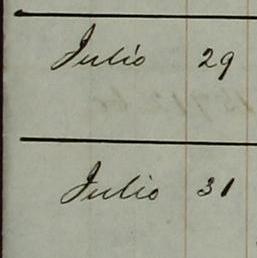 Julio 29
Julio 31